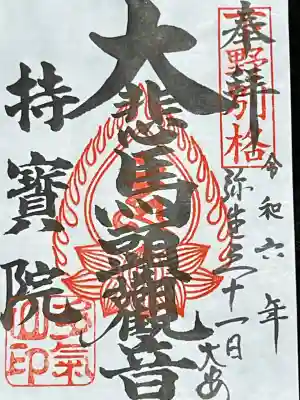 奉拝
令和六年
弥生三十一日 大安
大悲馬頭觀音
持寶院
多氣山印